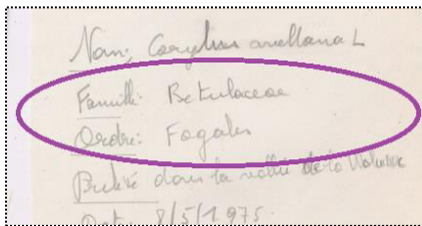 Nom: Corylus avellana L
Famille: Betulaceae
Ordre: Fagales
dans la vallée de la
Date: 8/5/1975.